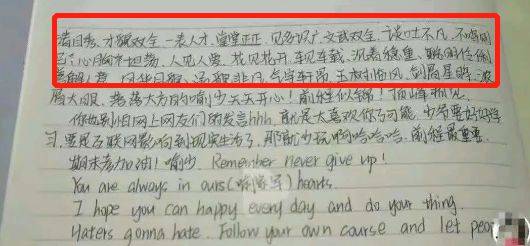 清目秀、才貌双全、一表人才、堂堂正正、见多识广、文武双全、谈吐不凡、不啻
心胸坦荡、人见人爱、花见花开、车见车载、沉着稳重、聪明伶俐
风华月貌、气宇轩昂、玉树临风、剑眉星眸、浓
眉大眼、落落大方的喻少天天开心！前程似锦！
你也别怕网上网友们的发言hhh，就是太喜欢你了可能，少爷要好好学
习，要是互联网影响到现实生活了，那就少玩啊哈哈哈，前程最重要
期末考加油！喻少，Remember never give up!
You are always in ours() hearts.
I hope you can happy every day and do your thing.
Haters gonna hate. Follow your own course and let peo